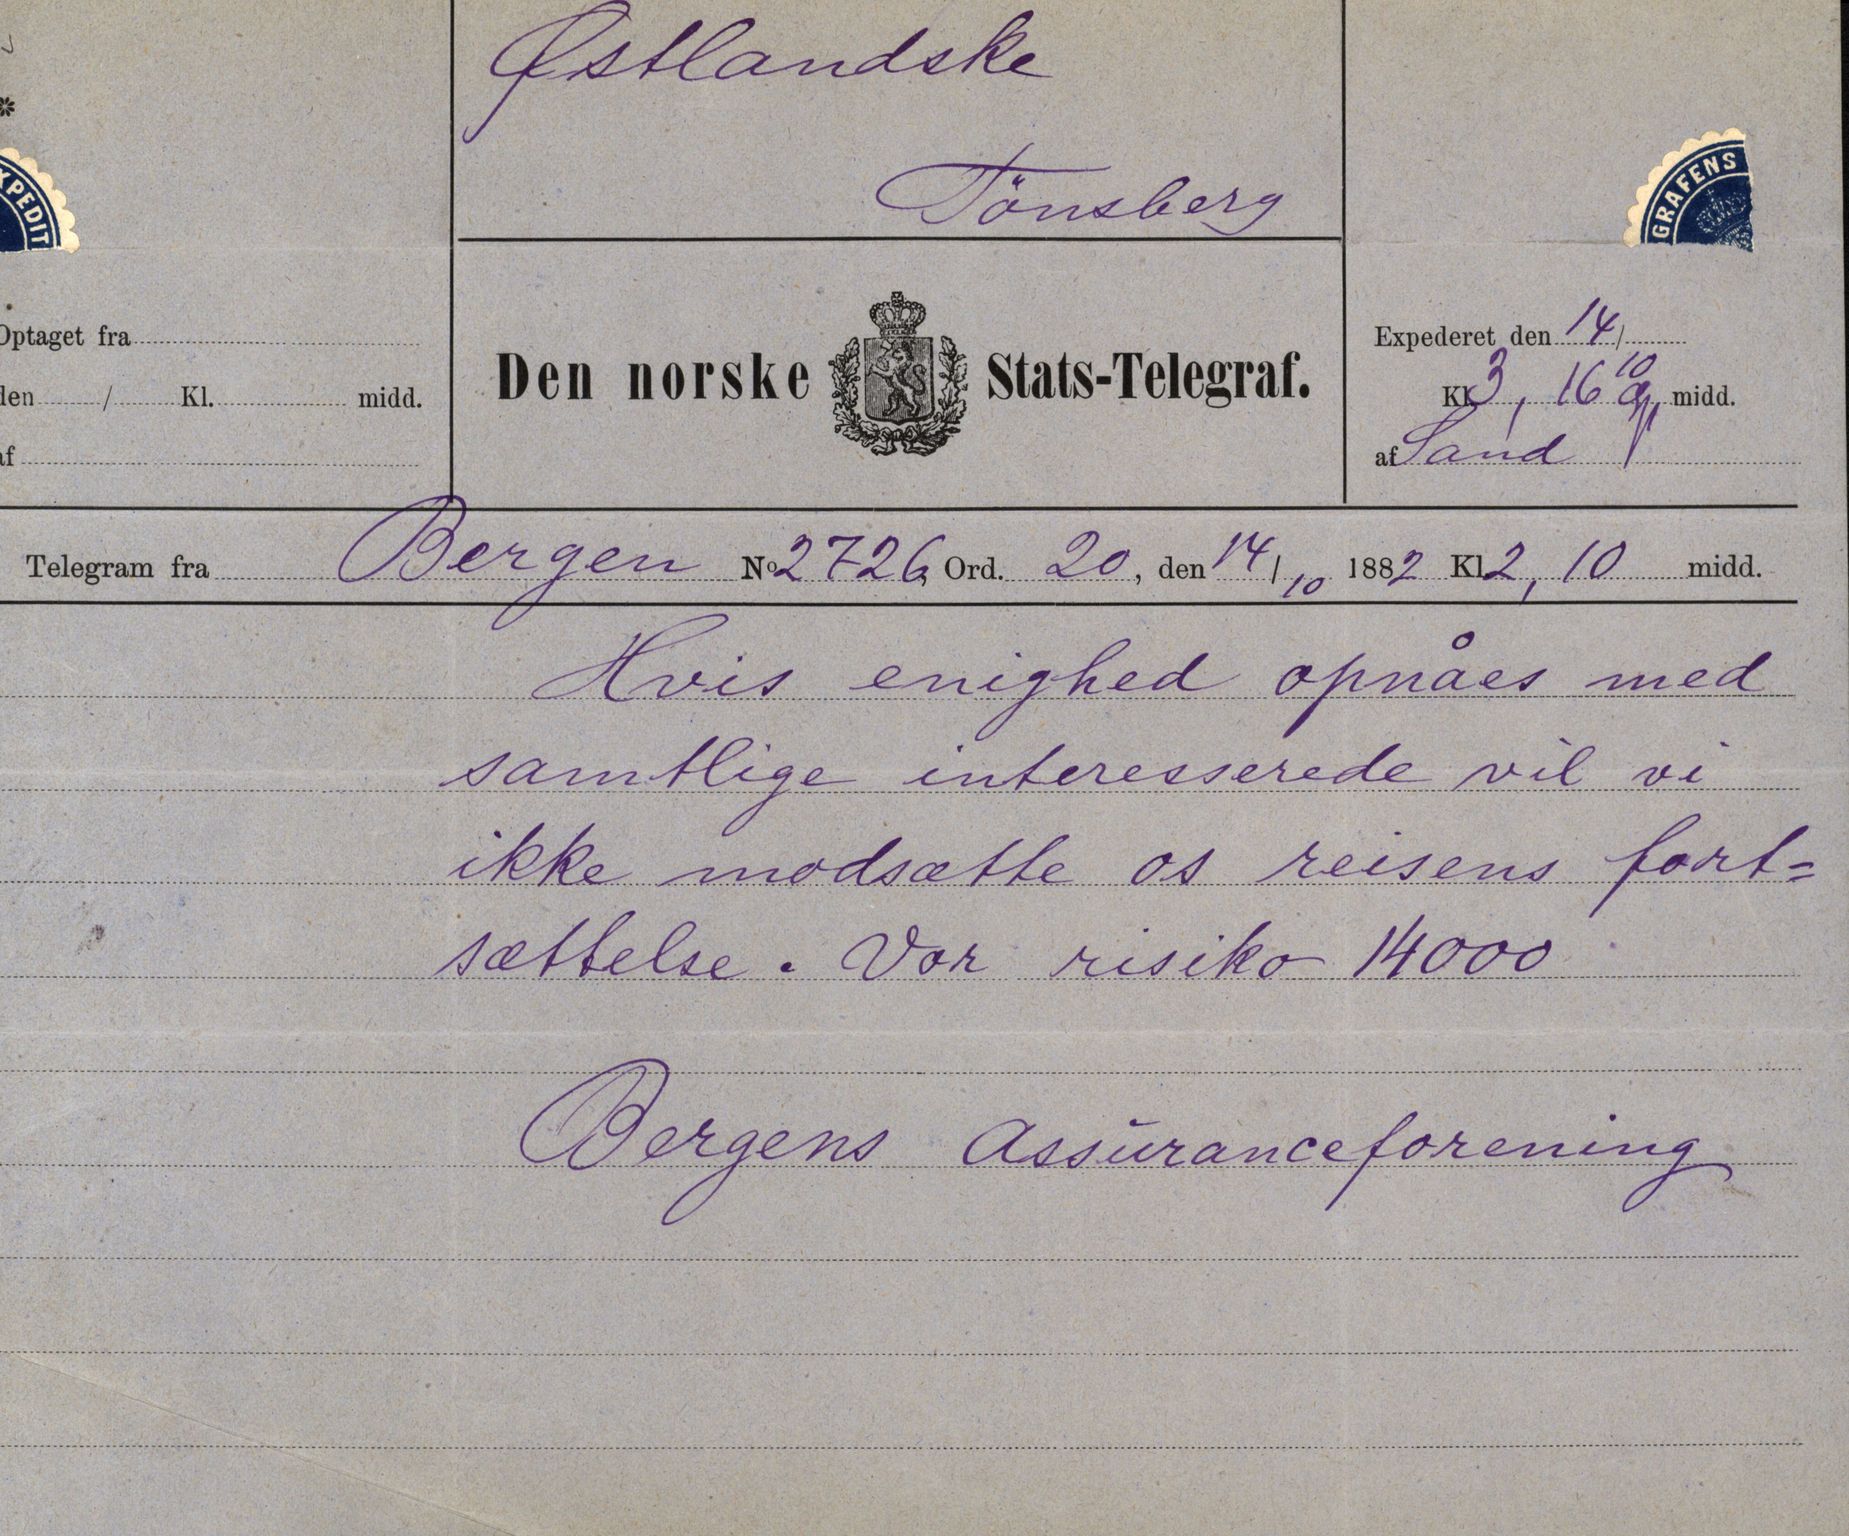 Østlandske
Tönsberg
XPEDIT
GRAFENS
Optaget fra
den / Kl. midd.
af
Den norske Stats-Telegraf.
Expederet den 14/10
Kl. 3, 16 midd.
af Sand
Telegram fra Bergen No 2726, Ord. 20, den 14/10 1882 Kl. 2,10 midd.
Hvis enighed opnåes med
samtlige interesserede vil vi
ikke modsætte os reisens fort=
sættelse. Vor risiko 14000
Bergens Assuranceforening